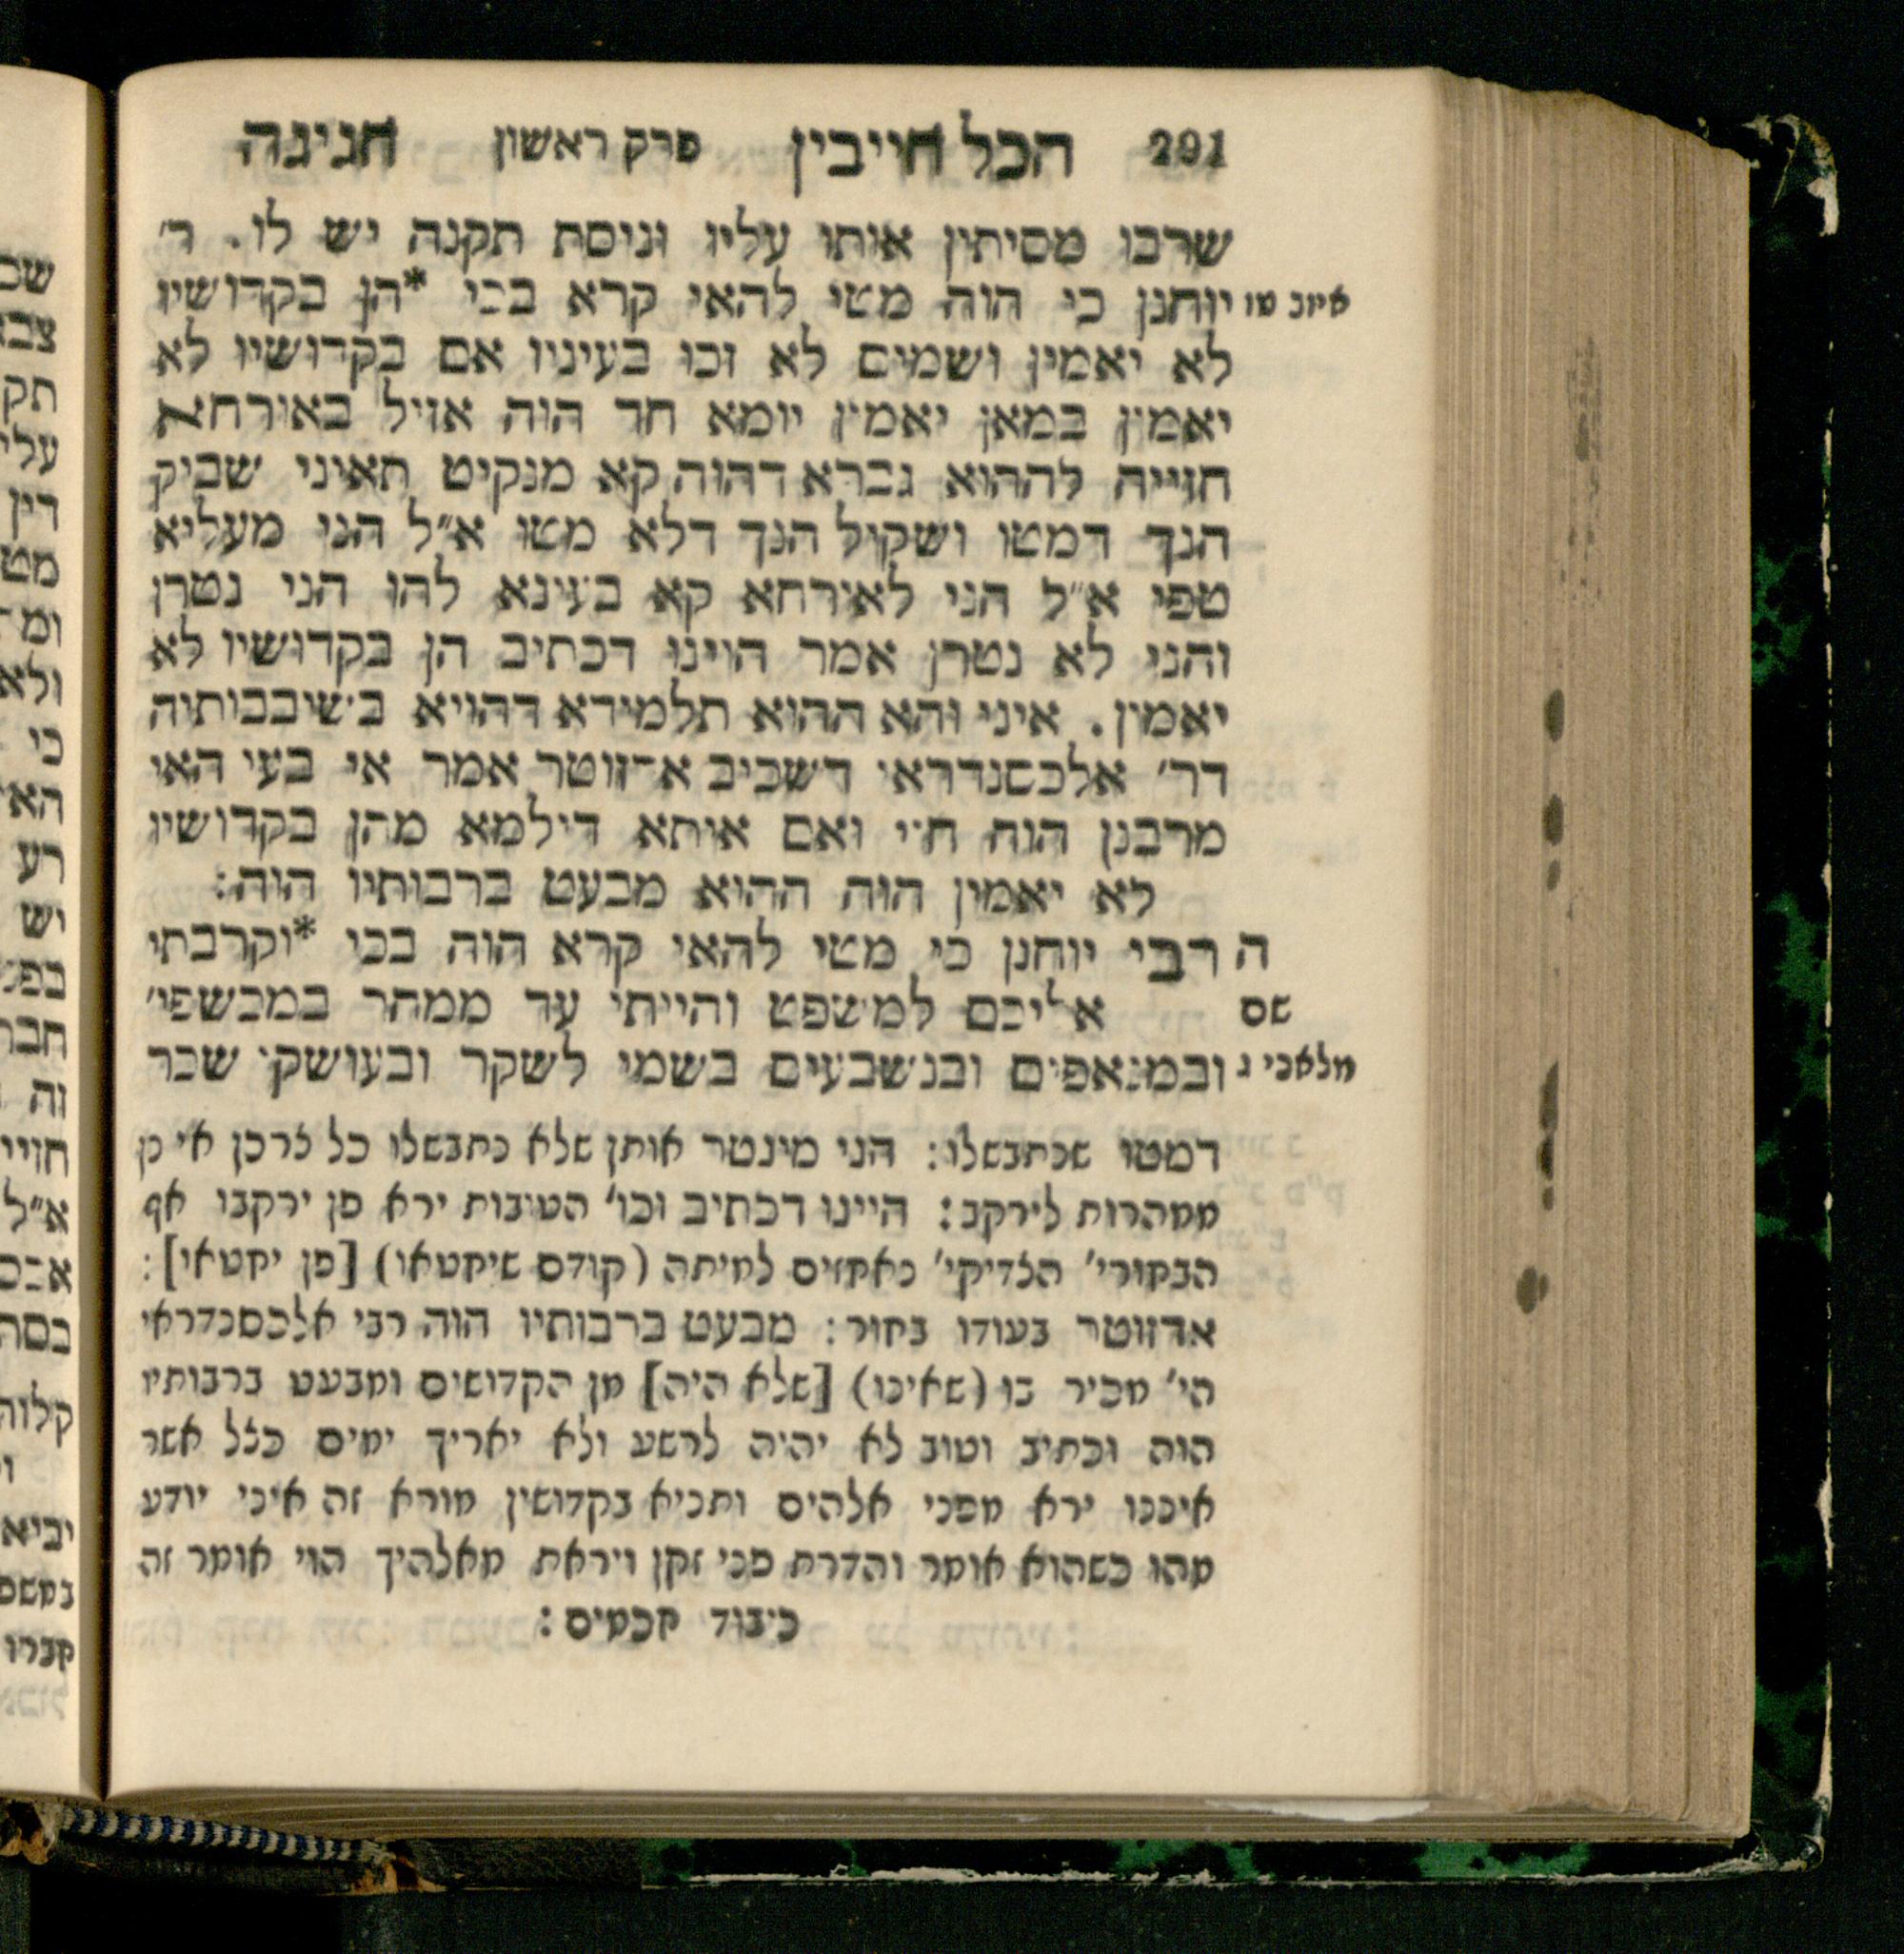 291 הכל חייבין פרק ראשון חגיגה
שרבו מסיתין אותו עליו וניסת תקנה יש לו. ר׳
איוב טו יוחנן כי הוה מטי להאי קרא בכי *הן בקדושיו
לא יאמין ושמים לא זכו בעיניו אם בקדושיו לא
יאמין במאן יאמין יומא חד הוה אזיל באורחא
חזייה לההוא גברא דהוה קא מנקיט תאיני שביק
הנך דמטו ושקיל הנך דלא מטו א״ל הני מעליא
טפי א״ל הני לאורחא קא בעינא להו הני נטרן
והני לא נטרן אמר היינו דכתיב הן בקדושיו לא
יאמין. איני והא ההוא תלמידא דהויא בשיבבותיה
דר׳ אלכסנדראי דשכיב אדזוטר אמר אי בעי האי
מרבנן הוה חיי ואם איתא דילמא מהן בקדושיו
לא יאמין הוה ההוא מבעט ברבותיו הוה:
ה רבי יוחנן כי מטי להאי קרא הוה בכי *וקרבתי
שם אליכם למשפט והייתי עד ממהר במכשפי׳
מלאכי ג ובמנאפים ובנשבעים בשמי לשקר ובעושקי שכר
דמטו שנתבשלו: הני מינטר אותן שלא נתבשלו כל צרכן אי כן
ממהרות לירקב: היינו דכתיב וכו׳ הטובות ירא פן ירקבו אף
הבחורי׳ הצדיקי׳ נאחזים למיתה (קודם שיחטאו) [פן יחטאו]:
אדזוטר בעודו בחור: מבעט ברבותיו הוה רבי אלכסנדראי
הי׳ מכיר בו (שאינו) [שלא היה] מן הקדושים ומבעט ברבותיו
הוה וכתיב וטוב לא יהיה לרשע ולא יאריך ימים כצל אשר
איננו ירא מפני אלהים ותניא בקדושין מורא זה איני יודע
מהו כשהוא אומר והדרת פני זקן ויראת מאלהיך הוי אומר זה
כיבוד חכמים: